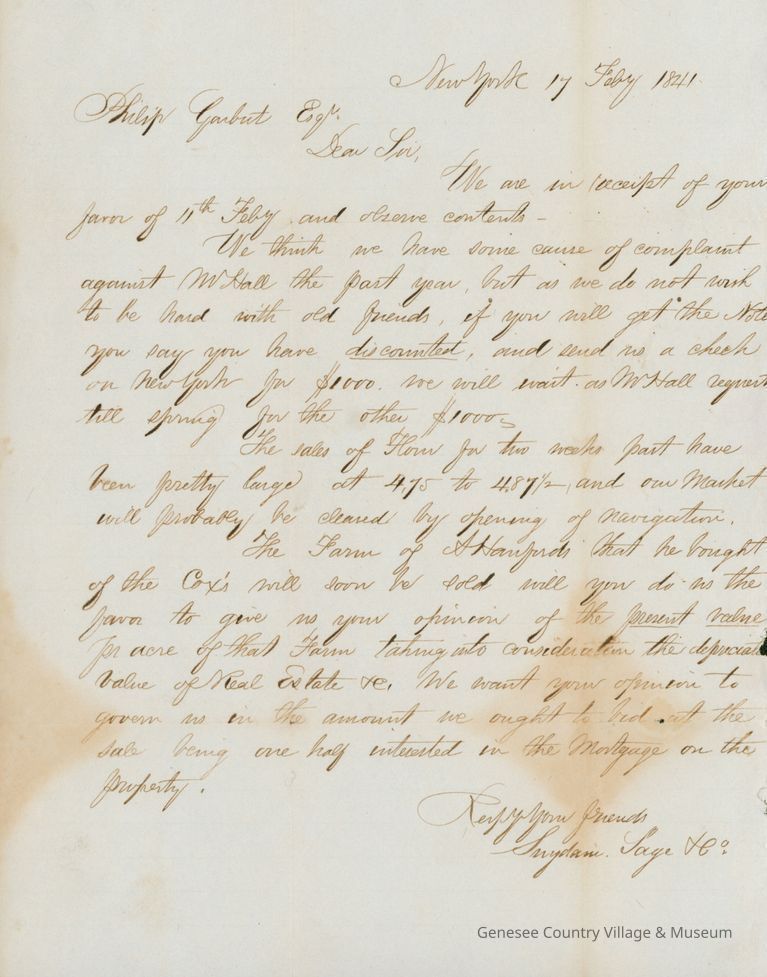 New York 17 Feby 1841
Philip Garbut Esqr.
Dear Sir,
We are in receipt of your
favor of 11th Feby. and observe contents -
We think we have some cause of complaint
against Mr Hall the past year, but as we do not wish
to be hard with old friends, if you will get the Note
you say you have discounted, and send us a check
on New York for $1000. we will wait as Mr Hall request
till spring for the other $1000=
The sales of Flour for two weeks past have
been pretty large at 4,75 to 4,87 1/2, and our Market
will probably be cleared by opening of navigation.
The Farm of A Hanfords that he bought
of the Cox's will soon be sold will you do us the
favor to give us your opinion of the present value
pr acre of that Farm taking into consideration the depreciate
value of Real Estate &c. We want your opinion to
govern us in the amount we ought to bid at the
sale being one half interested in the Mortgage on the
property.
Respy Your friends
Suydam. Sage & Co
Genesee Country Village & Museum